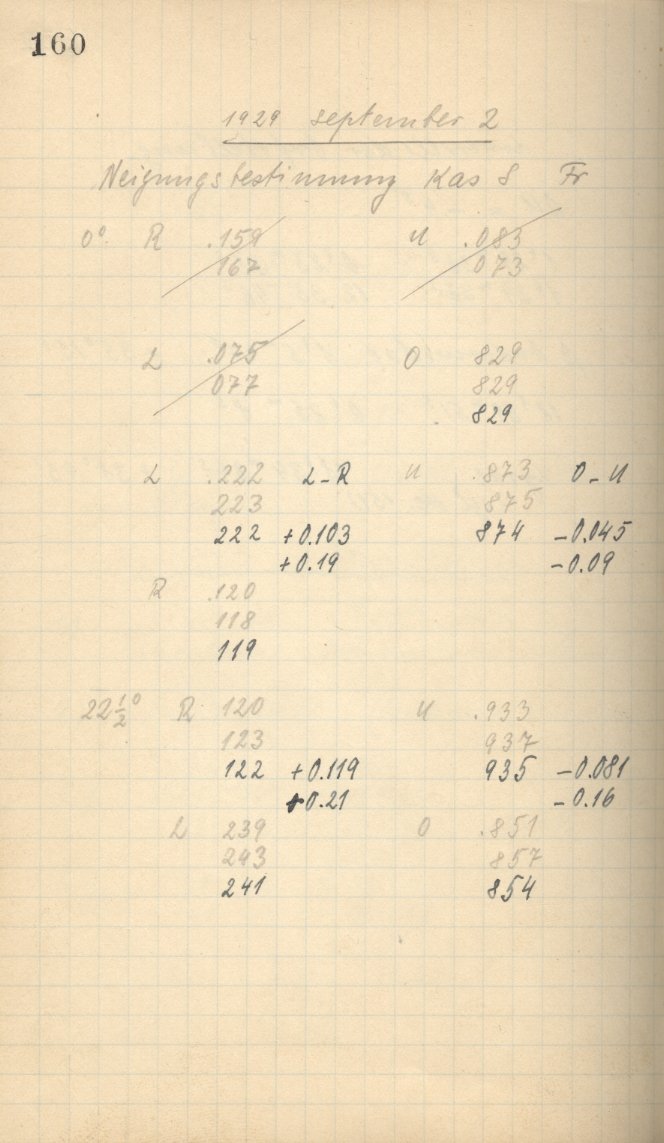 160
1929 september 2
Neigungsbestimmung Kas 8 Fr
0° R .159 U .083
167 073
L .075 O 829
077 829
829
L .222 L-R U .873 O-U
223 875
222 +0.103 874 -0.045
+0.19 -0.09
R .120
118
119
22½° R 120 U .933
123 937
122 +0.119 935 -0.081
+0.21 -0.16
L 239 O .851
243 857
241 854